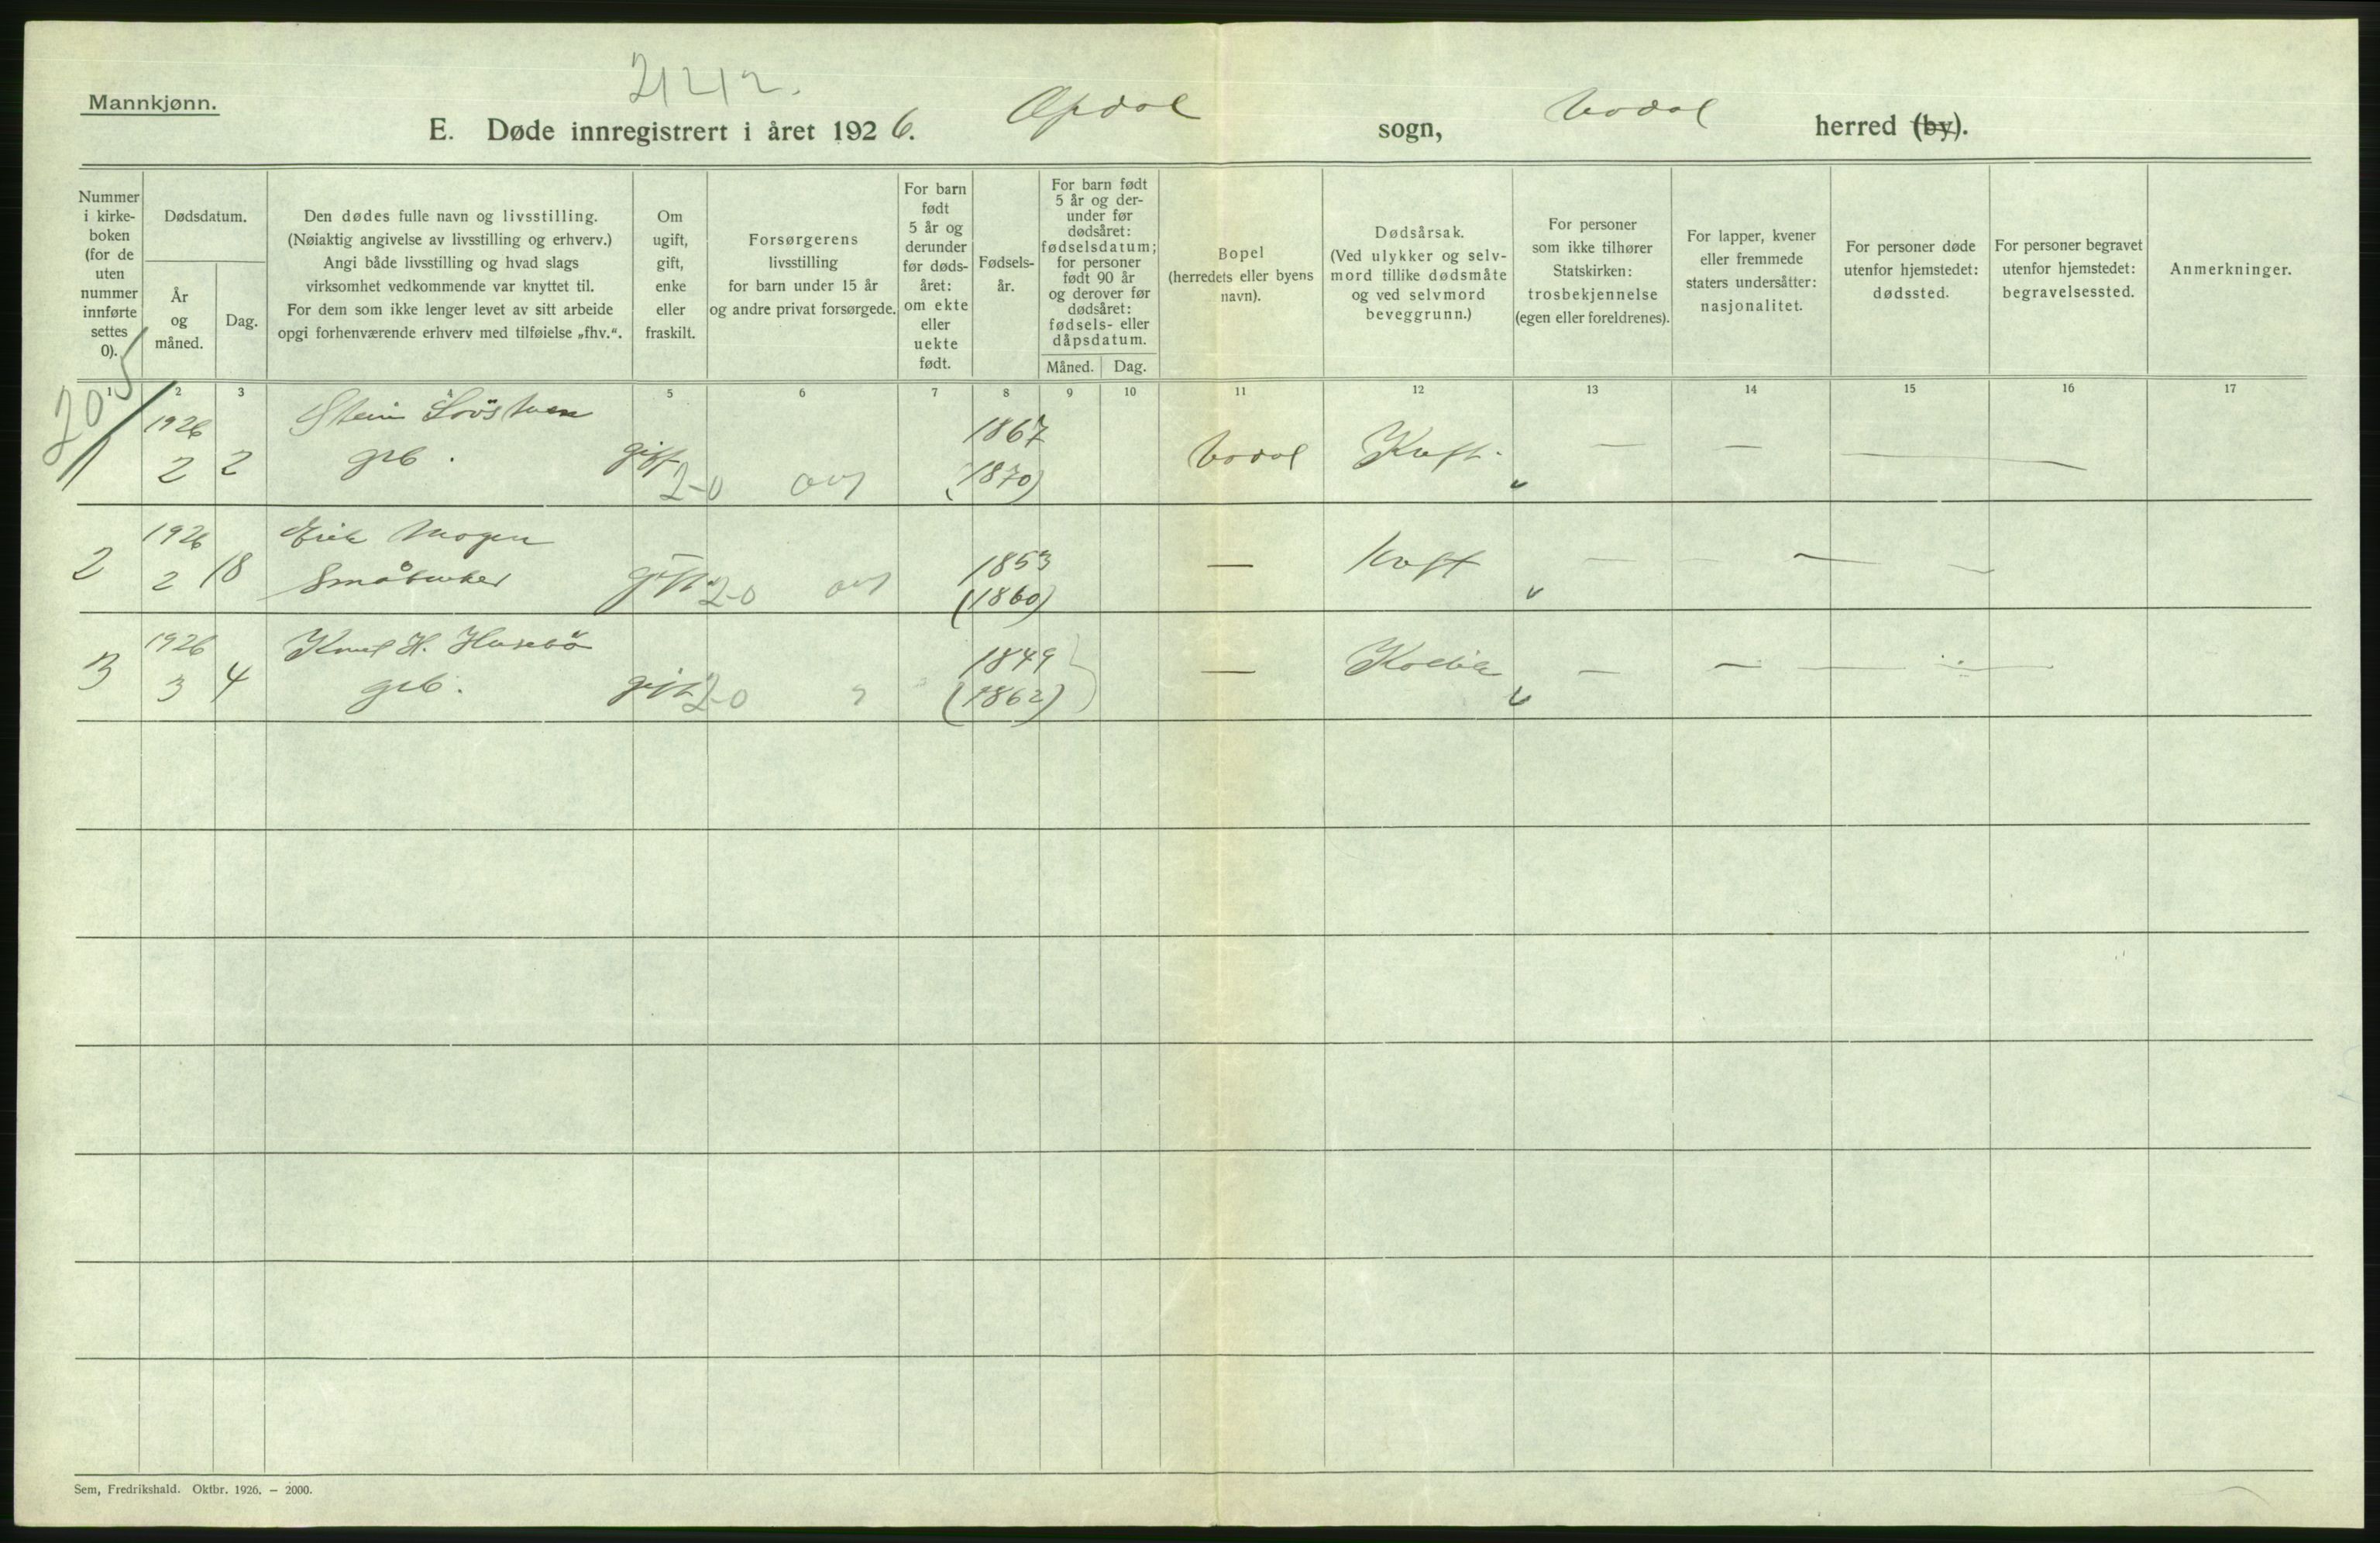 Mannkjønn.
21212.
E. Døde innregistrert i året 1926. Opdal sogn, Uvdal herred (by).
Nummer i kirke-boken (for de uten nummer innførte settes 0).
Dødsdatum.
År og måned.
Dag.
Den dødes fulle navn og livsstilling.
(Nøiaktig angivelse av livsstilling og erhverv.)
Angi både livsstilling og hvad slags
virksomhet vedkommende var knyttet til.
For dem som ikke lenger levet av sitt arbeide
opgi forhenværende erhverv med tilføielse „fhv.“.
Om ugift, gift, enke eller fraskilt.
Forsørgerens
livsstilling
for barn under 15 år
og andre privat forsørgede.
For barn født 5 år og derunder før døds-året: om ekte eller uekte født.
Fødsels-år.
For barn født 5 år og der-under før dødsåret: fødselsdatum; for personer født 90 år og derover før dødsåret: fødsels- eller dåpsdatum.
Måned. Dag.
Bopel
(herredets eller byens
navn).
Dødsårsak.
(Ved ulykker og selv-
mord tillike dødsmåte
og ved selvmord
beveggrunn.)
For personer
som ikke tilhører
Statskirken:
trosbekjennelse
(egen eller foreldrenes).
For lapper, kvener
eller fremmede
staters undersåtter:
nasjonalitet.
For personer døde
utenfor hjemstedet:
dødssted.
For personer begravet
utenfor hjemstedet:
begravelsessted.
Anmerkninger.
1 2 3 4 5 6 7 8 9 10 11 12 13 14 15 16 17
205
1 1926 Stein 1867
2 2 grb. gift 2-0 (1870) Uvdal Kreft. — — —
2 1926 Erik Mogen 1853
2 18 Småbruker gift 2-0 (1860) — Kreft — — —
3 1926 Knut H. Husebö 1849
3 4 grb. gift 2-0 (1862) — — — —
Sem, Fredrikshald. Oktbr. 1926. — 2000.